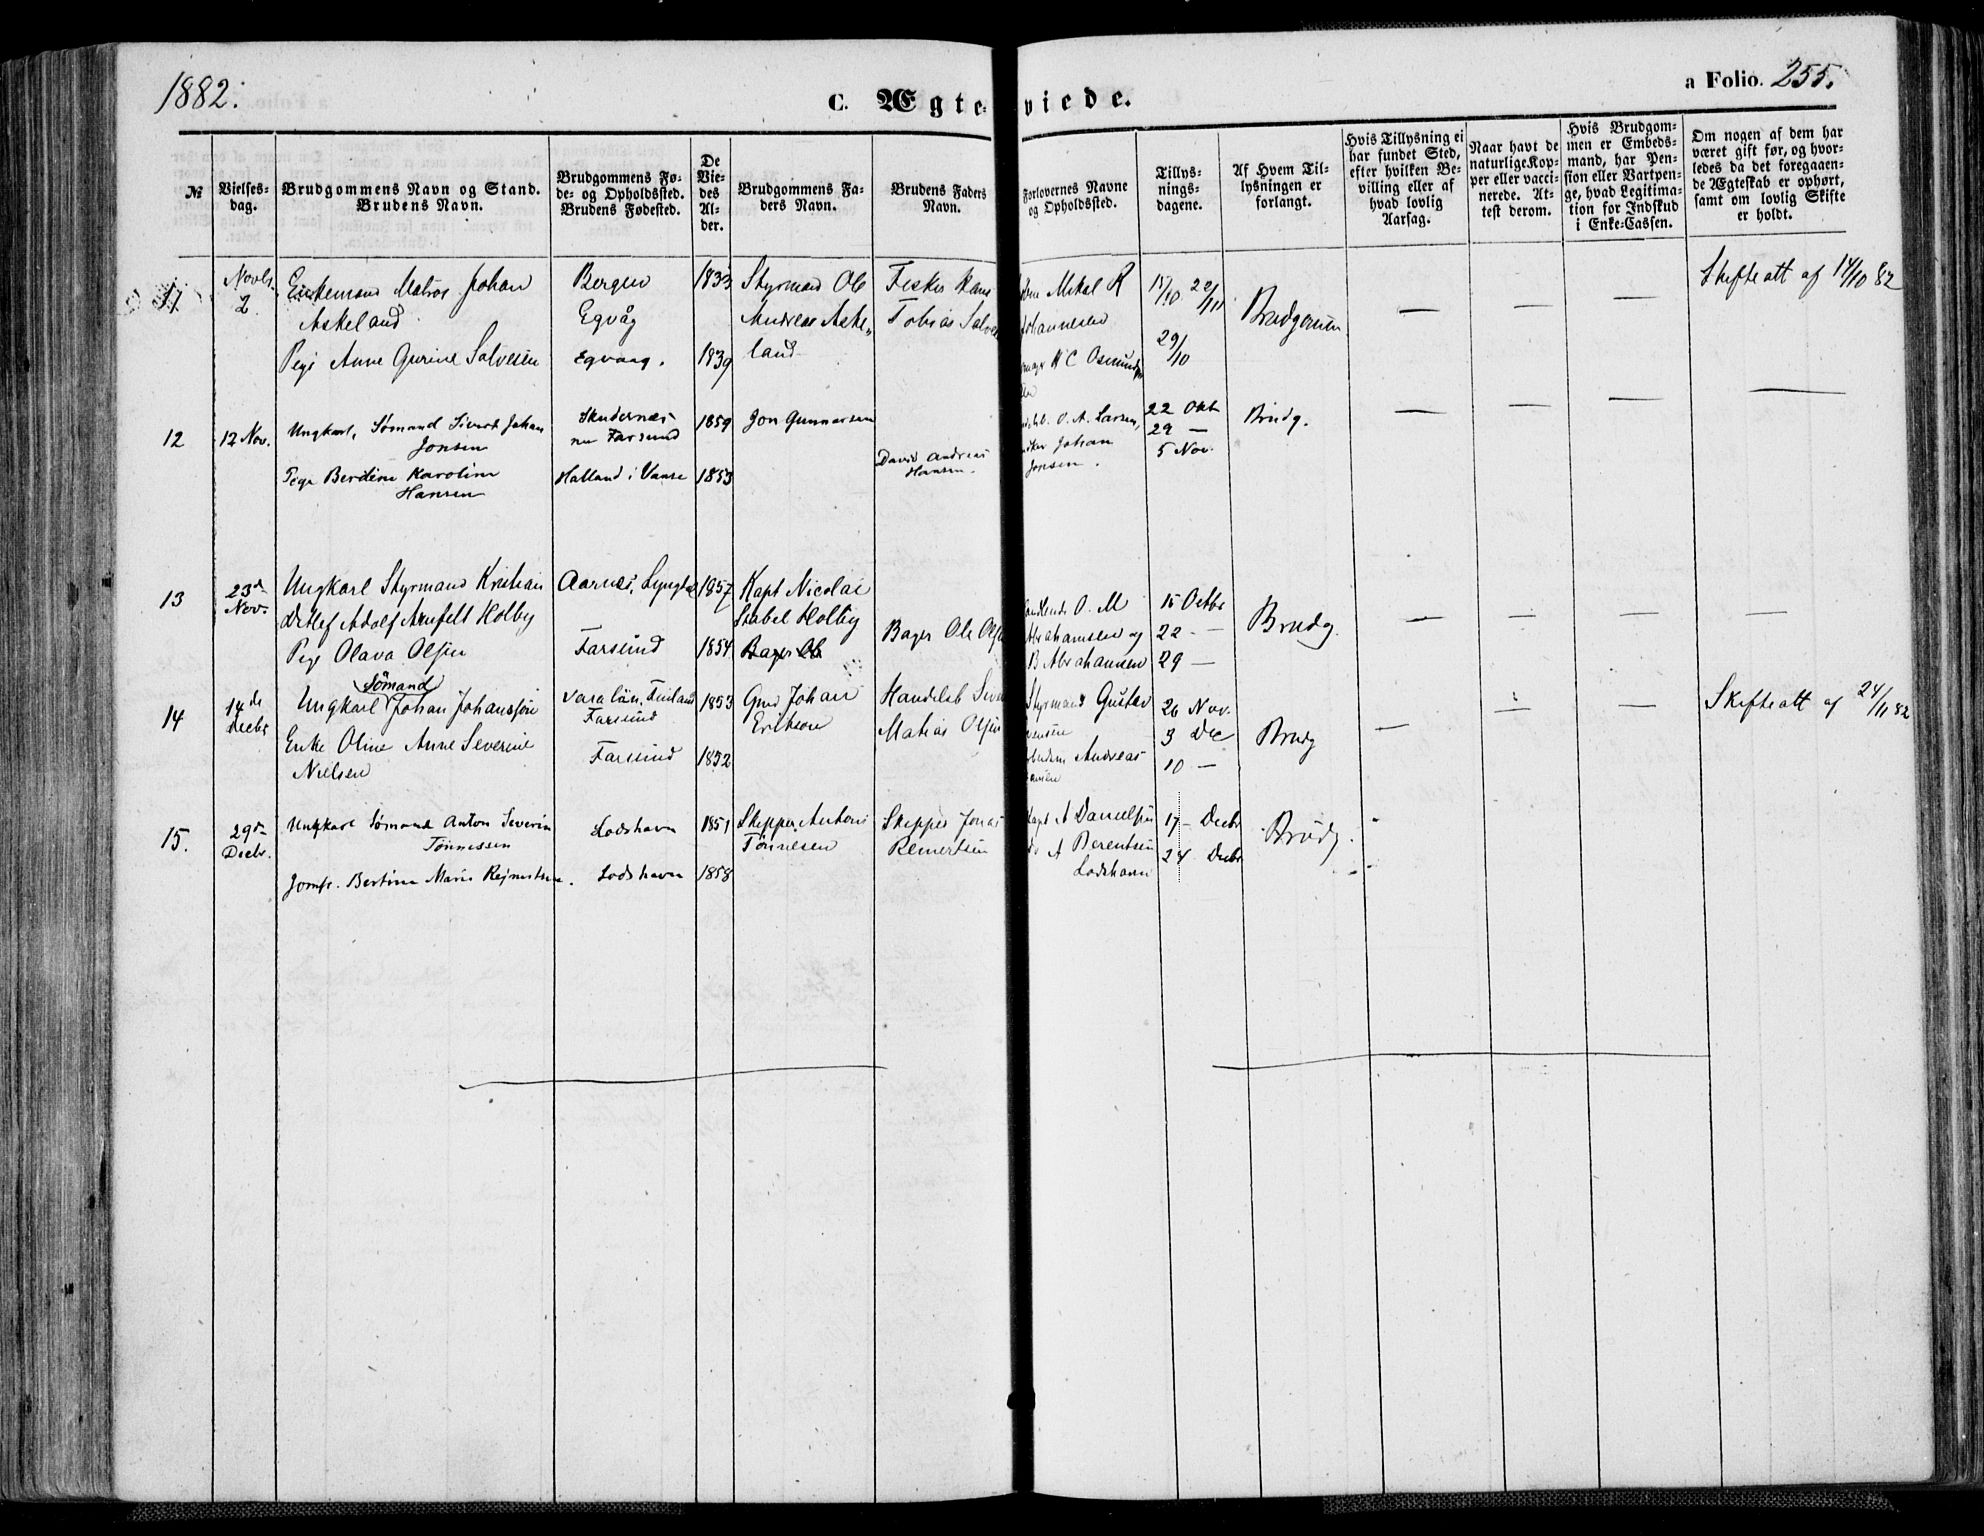 1882.
C. Ægteviede.
a Folio. 255.
№
Vielses-
dag.
Brudgommens Navn og Stand.
Brudens Navn.
Brudgommens Fø-
de- og Opholdssted.
Brudens Fødested.
De
Vie-
des
Al-
der.
Brudgommens Fa-
ders Navn.
Brudens Faders
Navn.
Forlovernes Navne
og Opholdssted.
Tillys-
nings-
dagene.
Af Hvem Til-
lysningen er
forlangt.
Hvis Tillysning ei
har fundet Sted,
efter hvilken Be-
villing eller af
hvad lovlig
Aarsag.
Naar havt de
naturlige Kop-
per eller vacci-
nerede. At-
test derom.
Hvis Brudgom-
men er Embeds-
mand, har Pen-
sion eller Vartpen-
ge, hvad Legitima-
tion for Indskud
i Enke-Cassen.
Om nogen af dem har
været gift før, og hvor-
ledes da det foregaaen-
de Ægteskab er ophørt,
samt om lovlig Skifte
er holdt.
Novbr
2
Enkemand Matros Johan
Askeland
Pige Anne Gurine Salvesen
Bergen
Egvåg
Egvaag.
1833
1839
Styrmand Ole
Andreas Aske-
land
Fisker Hans
Tobias Salves
Mikal R
Johannesen
K C Osmunds
15/10 22/10
29/10
Brudgommen
— — —
Skifteatt af 14/10 82
12
12 Nov.
Ungkarl, Sømand Sivert Johan
Jonsen
Pige Berdine Karoline
Hansen
Skudesnæs
nu Farsund
Halland i Vanse
1859
1853
Jon Gunnarsen
David Andreas
Hansen.
O. A. Larsen,
Johan
Jonsen.
22 Okt
29 —
5 Nov.
Brudg.
— — — —
13
23de
Nov.
Ungkarl Styrmand Kristian
Detlef Adolf Arnfelt Holby
Pige Olava Olsen
Aarnes, Lyngdal
Farsund
1857
1854
Kapt Nicolai
Stabel Holby
Bager Ole
Bager Ole Olsen
O. M
Abrahamsen og
B Abrahamsen
15 Octbr
22 —
29 —
Brudg.
— — — —
14
14de
Decbr
Sømand
Ungkarl Johan Johanssøn
Enke Oline Anne Severine
Nielsen
Vasa län, Finland
Farsund
Farsund
1853
1852
Gmd Johan
Erikson
Handelsb Sive
Matias Olsen
Styrmand Gustav
Andreas
26 Nov.
3 Dec
10 —
Brudg
— — —
Skifteatt af 24/11 82
15.
29de
Decbr.
Ungkarl Sømand Anton Severin
Tønnessen
Jomfr. Bertine Marie Rejmertsen.
Lodshavn
Lodshavn
1851
1858
Skipper Anton
Tønnesen
Skipper Jonas
Reimertsen
Kapt A Danielsen
A Berentsen
Lodshavn
17 — Decbr
24 Decbr
Brudg.